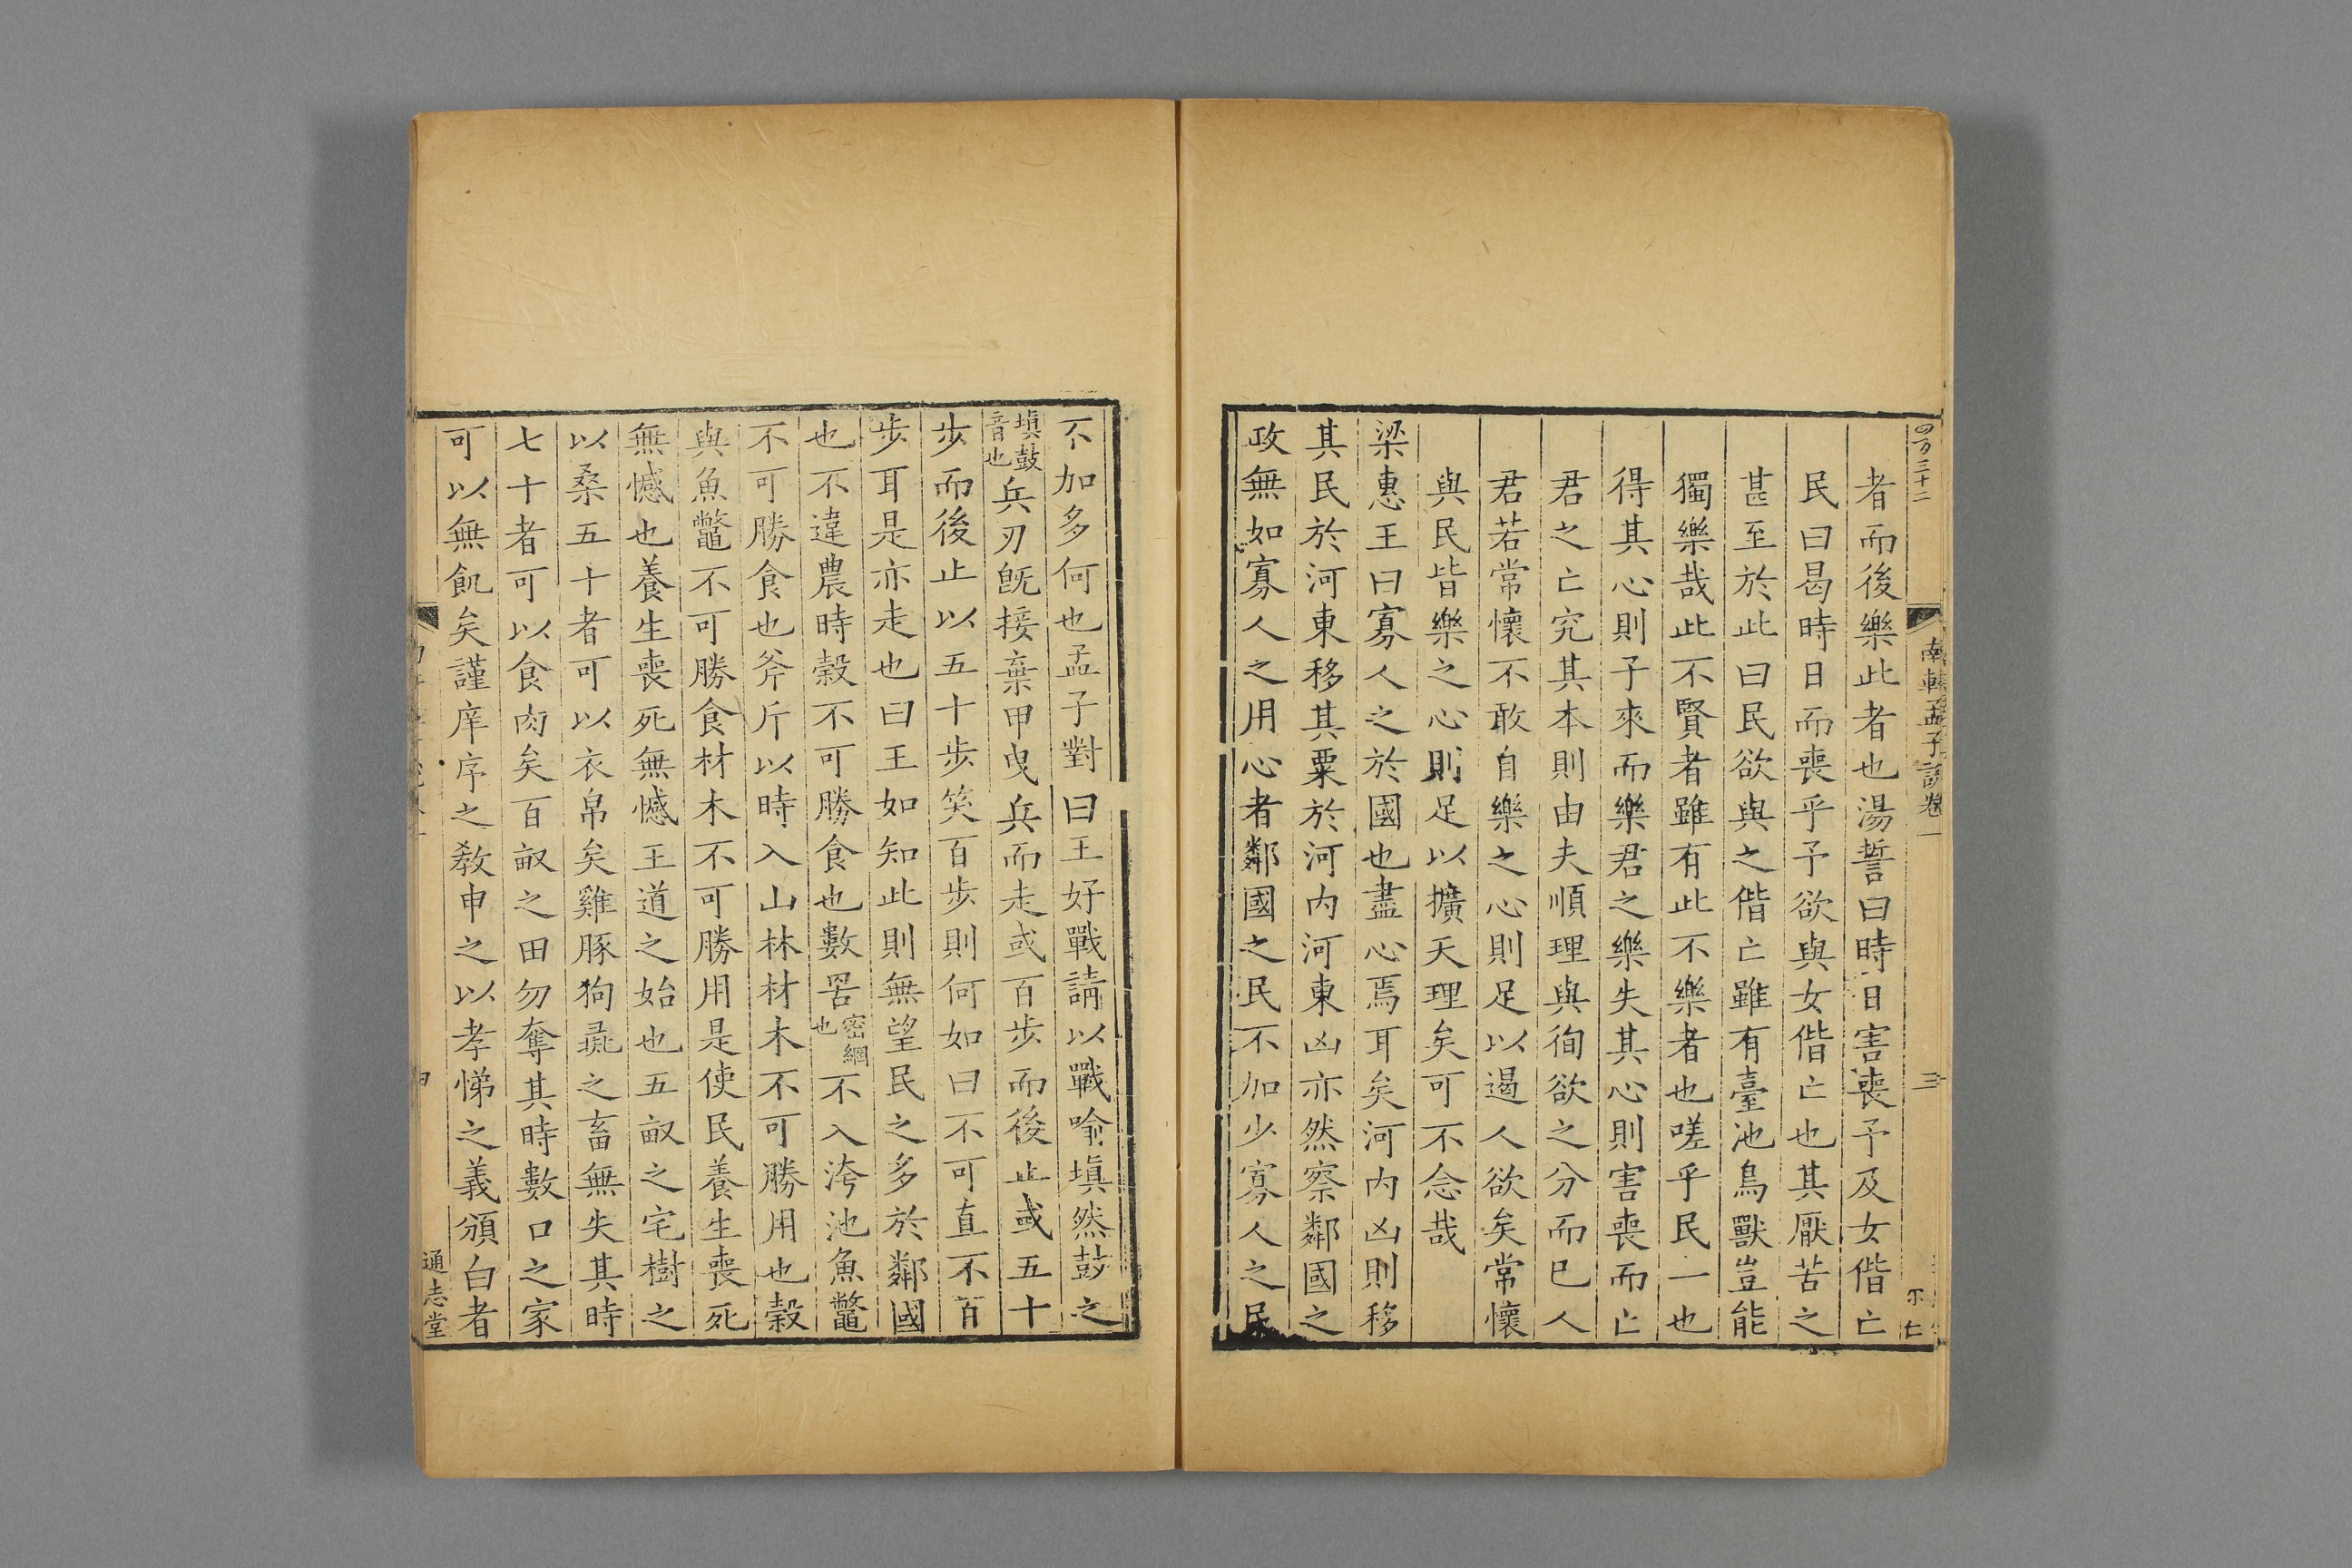 四百三十二
南軒孟子說卷一
三
者而後樂此者也湯誓曰時日害喪予及女偕亡
民曰曷時日而喪乎予欲與女偕亡也其厭苦之
甚至於此曰民欲與之偕亡雖有臺池鳥獸豈能
獨樂哉此不賢者雖有此不樂者也嗟乎民一也
得其心則子來而樂君之樂失其心則害喪而亡
君之亡究其本則由夫順理與徇欲之分而已人
君若常懷不敢自樂之心則足以遏人欲矣常懷
與民皆樂之心則足以擴天理矣可不念哉
梁惠王曰寡人之於國也盡心焉耳矣河內凶則移
其民於河東移其粟於河內河東凶亦然察鄰國之
政無如寡人之用心者鄰國之民不加少寡人之民
不加多何也孟子對曰王好戰請以戰喻塡然鼓之
塡鼓音也兵刃旣接棄甲曳兵而走或百步而後止或五十
步而後止以五十步笑百步則何如曰不可直不百
步耳是亦走也曰王如知此則無望民之多於鄰國
也不違農時穀不可勝食也數罟密網也不入洿池魚鼈
不可勝食也斧斤以時入山林材木不可勝用也穀
與魚鼈不可勝食材木不可勝用是使民養生喪死
無憾也養生喪死無憾王道之始也五畝之宅樹之
以桑五十者可以衣帛矣雞豚狗彘之畜無失其時
七十者可以食肉矣百畝之田勿奪其時數口之家
可以無飢矣謹庠序之教申之以孝悌之義頒白者
通志堂